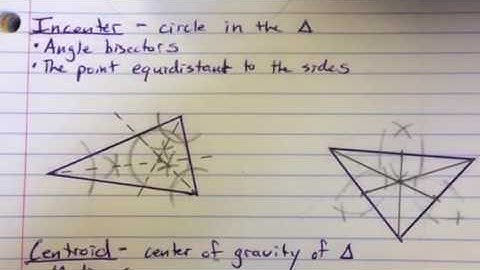 Incenter - circle in the Δ
• Angle bisectors
• The point equidistant to the sides
Centroid - center of gravity of Δ